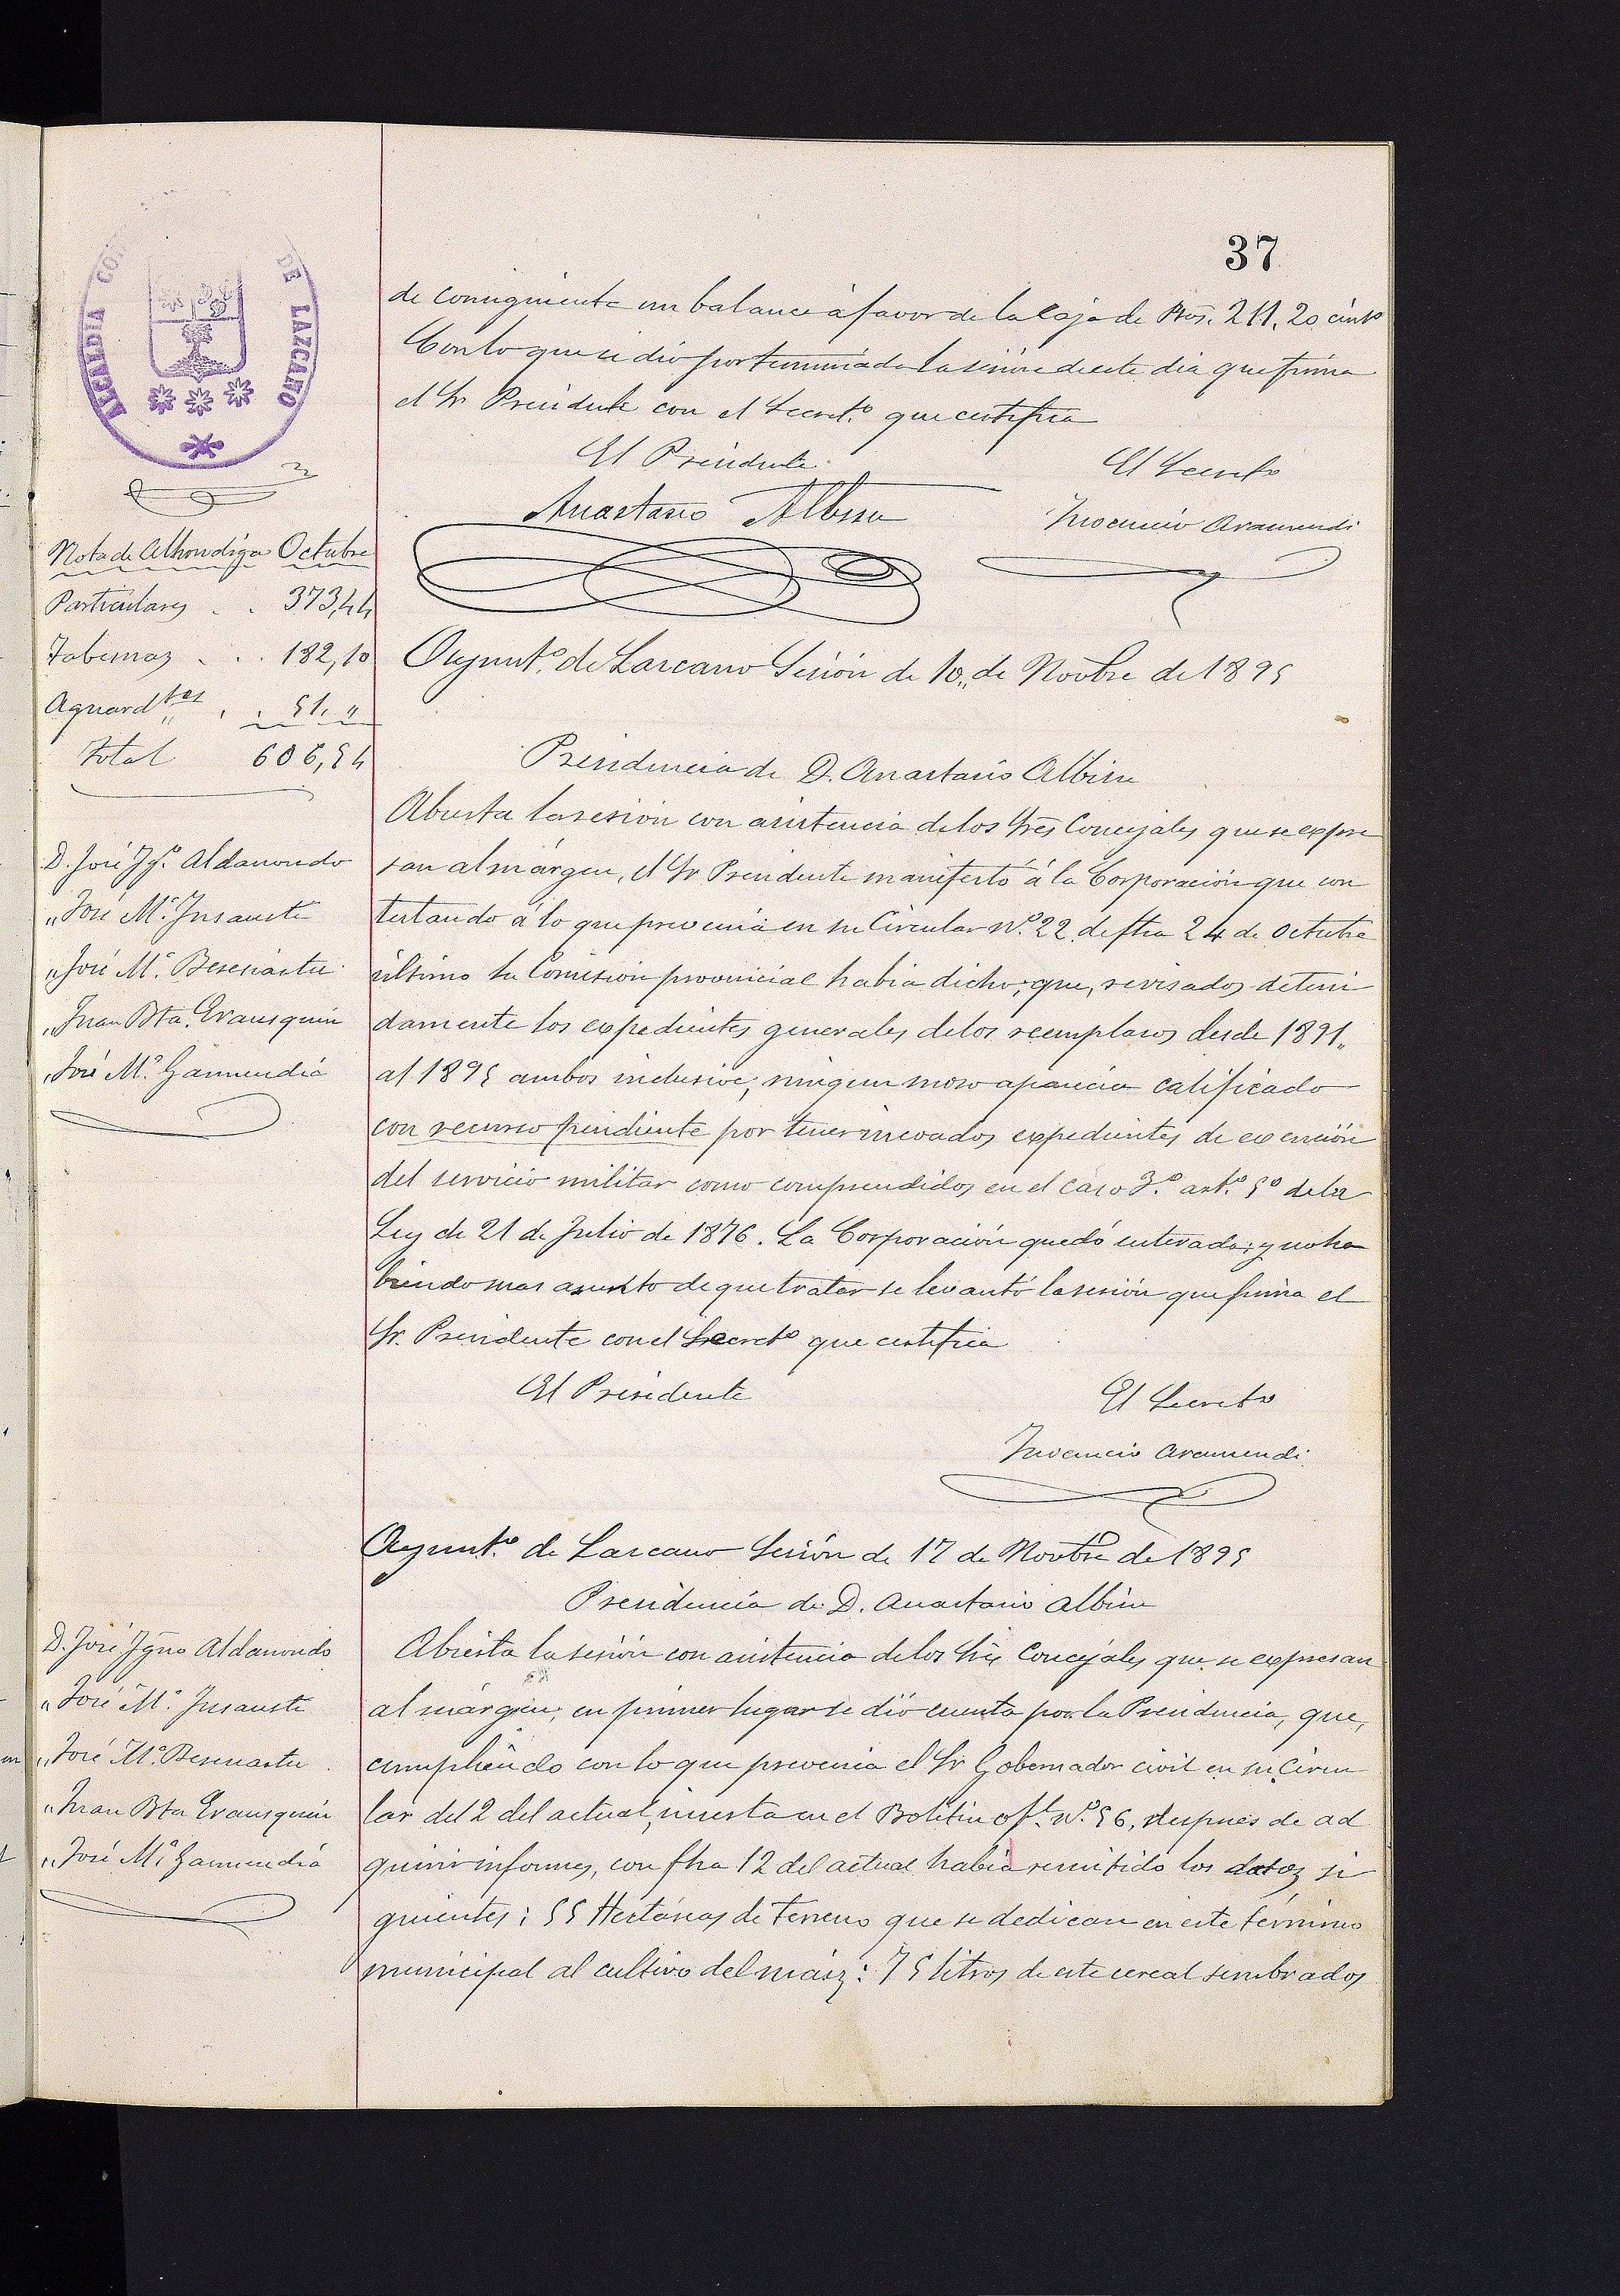 37
ALCALDIA CO DE LAZCANO
de consiguiente un balance á favor de la Caja de Ptas. 211,20 cénts
Con lo que se dió por terminada la sesión de este dia que firma
el Sr Presidente con el Secret.º que certifica
El Presidente
El Secreto
Anastasio Albisu
Inocencio Aramendi
Nota de Alhondiga Octubre
Particulares . . 373,44
Tabernas . . . 182,10
Aguard.tes . . 51. "
Total 606,54
Ayunt.º de Lazcano Sesión de 10,, de Novbre de 1895
Presidencia de D. Anastasio Albisu
D. José Ig.º Aldanondo
" José M.ª Insausti
" José M.ª Beseriartu
" Juan Bta. Erausquin
" José M.ª Garmendia
Abierta la sesión con asistencia de los Sres Concejales que se expre
san al márgen, el Sr Presidente manifestó á la Corporación que con
testando á lo que prevenia en su Circular nº. 22 de fha 24 de Octubre
último la Comisión provincial habia dicho; que, revisados deteni
damente los expedientes generales de los reemplazos desde 1891,,
al 1895 ambos inclusive, ningun mozo aparecia calificado
con recurso pendiente por tener incoados expedientes de exención
del servicio militar como comprendidos en el caso 3.º art.º 5º de la
Ley de 21 de Julio de 1876. La Corporación quedó enterada; y no ha
biendo mas asunto de que tratar se levantó la sesión que firma el
Sr. Presidente con el Secretº que certifica
El Presidente
El Secreto
Inocencio Aramendi
Ayunt.º de Lazcano Sesión de 17 de Novbre de 1895
Presidencia de D. Anastasio Albisu
D. José Igno Aldanondo
" José M.ª Insausti
" José M.ª Beseriartu
" Juan Bta Erausquin
" José M.ª Garmendia
Abierta la sesión con asistencia de los Sres Concejales que se expresan
al márgen; en primer lugar se dió cuenta por la Presidencia, que,
cumpliendo con lo que prevenia el Sr Gobernador civil en su Circu
lar del 2 del actual, inserta en el Boletin of.l nº. 56, despues de ad
quirir informes, con fha 12 del actual habia remitido los datos si
guientes: 55 Hectáreas de terreno que se dedican en este término
municipal al cultivo del maiz: 75 litros de este cereal sembrados